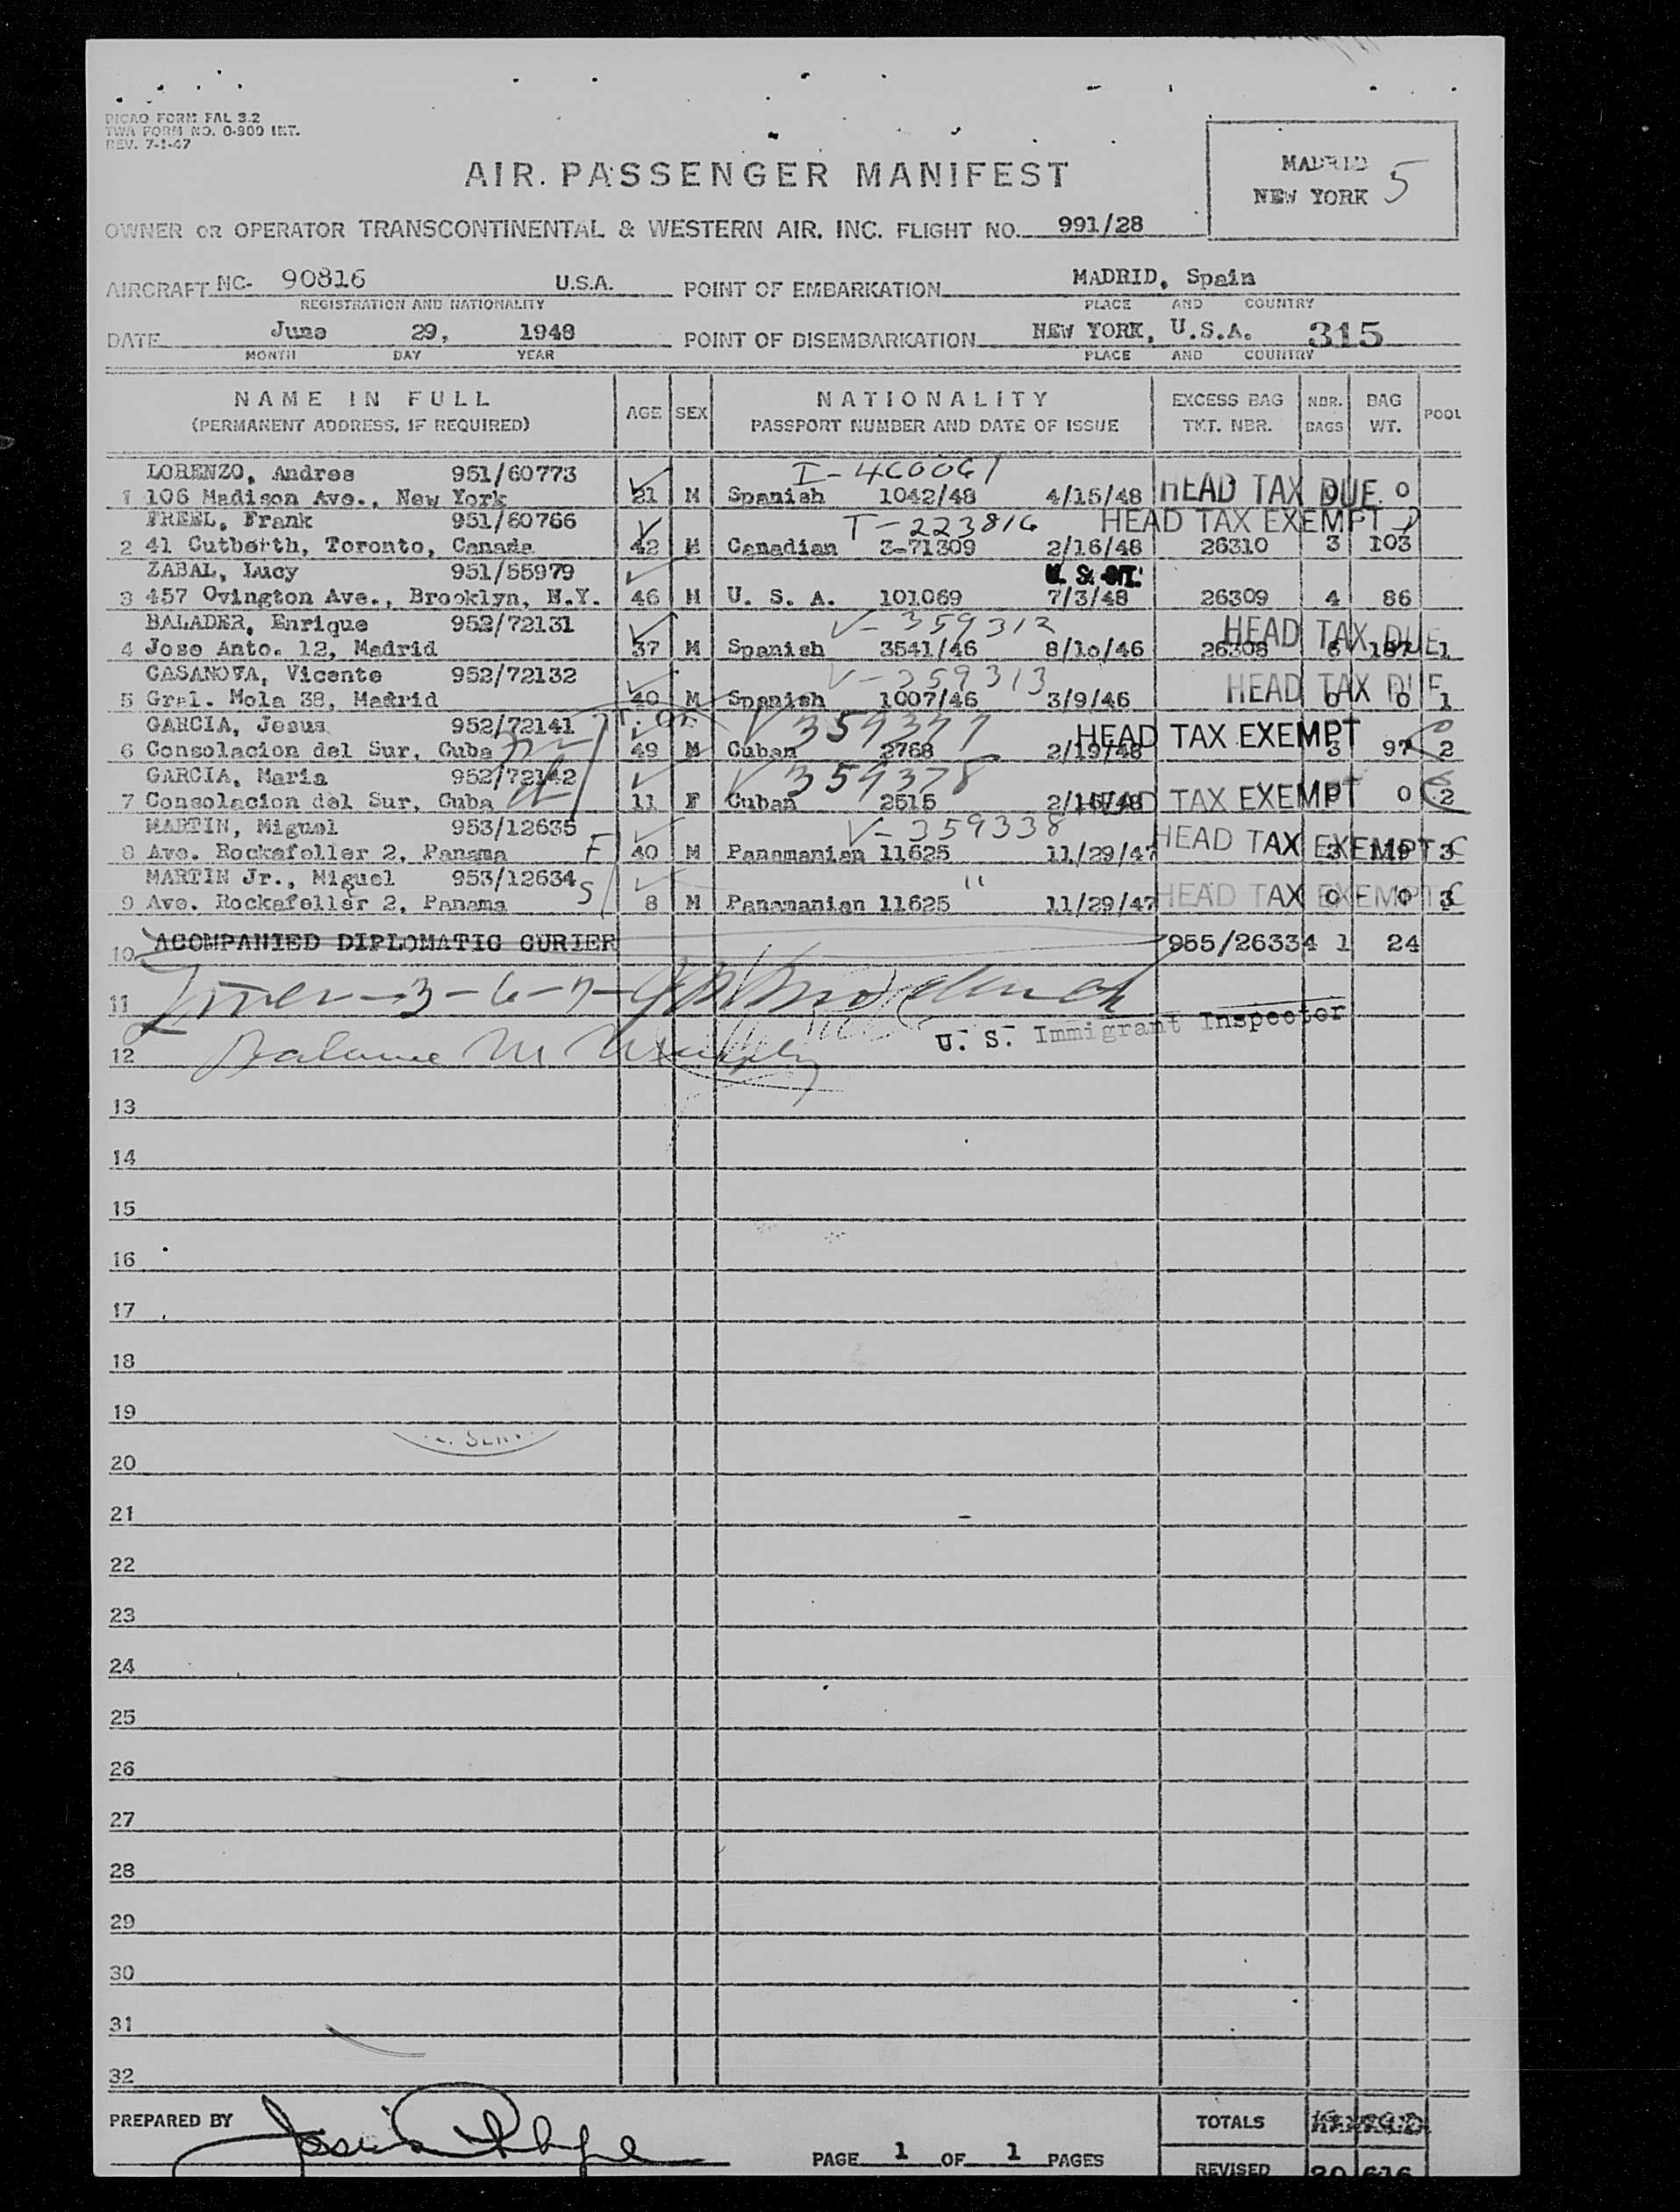 PICAO FORM FAL 3.2
TWA FORM NO. 0-900 INT.
REV. 7-1-47
AIR PASSENGER MANIFEST
MADRID
NEW YORK 5
OWNER OR OPERATOR TRANSCONTINENTAL & WESTERN AIR. INC. FLIGHT NO. 991/28
AIRCRAFT NC- 90816 U.S.A. POINT OF EMBARKATION MADRID, Spain
REGISTRATION AND NATIONALITY PLACE AND COUNTRY
DATE June 29, 1948 POINT OF DISEMBARKATION NEW YORK, U.S.A. 315
MONTH DAY YEAR PLACE AND COUNTRY
NAME IN FULL AGE SEX NATIONALITY EXCESS BAG NBR. BAG POOL
(PERMANENT ADDRESS, IF REQUIRED) PASSPORT NUMBER AND DATE OF ISSUE TKT. NBR. BAGS WT.
LORENZO, Andres 951/60773 I-460061
1 106 Madison Ave., New York 21 M Spanish 1042/48 4/15/48 HEAD TAX DUE 0
FREEL, Frank 951/60766 T-223816 HEAD TAX EXEMPT
2 41 Cutberth, Toronto, Canada 42 M Canadian 3-71309 2/16/48 26310 3 103
ZABAL, Lucy 951/55979 U. S. CIT.
3 457 Ovington Ave., Brooklyn, N.Y. 46 M U. S. A. 101069 7/3/48 26309 4 86
BALADER, Enrique 952/72131 V-359312 HEAD TAX DUE
4 Jose Anto. 12, Madrid 37 M Spanish 3541/46 8/10/46 26308 6 187 1
CASANOVA, Vicente 952/72132 V-359313 HEAD TAX DUE
5 Gral. Mola 38, Madrid 40 M Spanish 1007/46 3/9/46 0 0 1
GARCIA, Jesus 952/72141 V 359377 HEAD TAX EXEMPT
6 Consolacion del Sur, Cuba 49 M Cuban 2768 2/19/48 3 97 2
GARCIA, Maria 952/72142 V 359378
7 Consolacion del Sur, Cuba 11 F Cuban 2515 2/16/48 HEAD TAX EXEMPT 0 2
MARTIN, Miguel 953/12635 V-359338 HEAD TAX EXEMPT C
8 Ave. Rockafeller 2, Panama F 40 M Panamanian 11625 11/29/47 3 119 3
MARTIN Jr., Miguel 953/12634 S " HEAD TAX EXEMPT C
9 Ave. Rockafeller 2, Panama 8 M Panamanian 11625 11/29/47 0 0 3
10 ACOMPANIED DIPLOMATIC CURIER 955/26334 1 24
11 -3-6-7-
U. S. Immigrant Inspector
12 Balance M
13
14
15
16
17
18
19
20
21
22
23
24
25
26
27
28
29
30
31
32
PREPARED BY
TOTALS
PAGE 1 OF 1 PAGES
REVISED 20 616